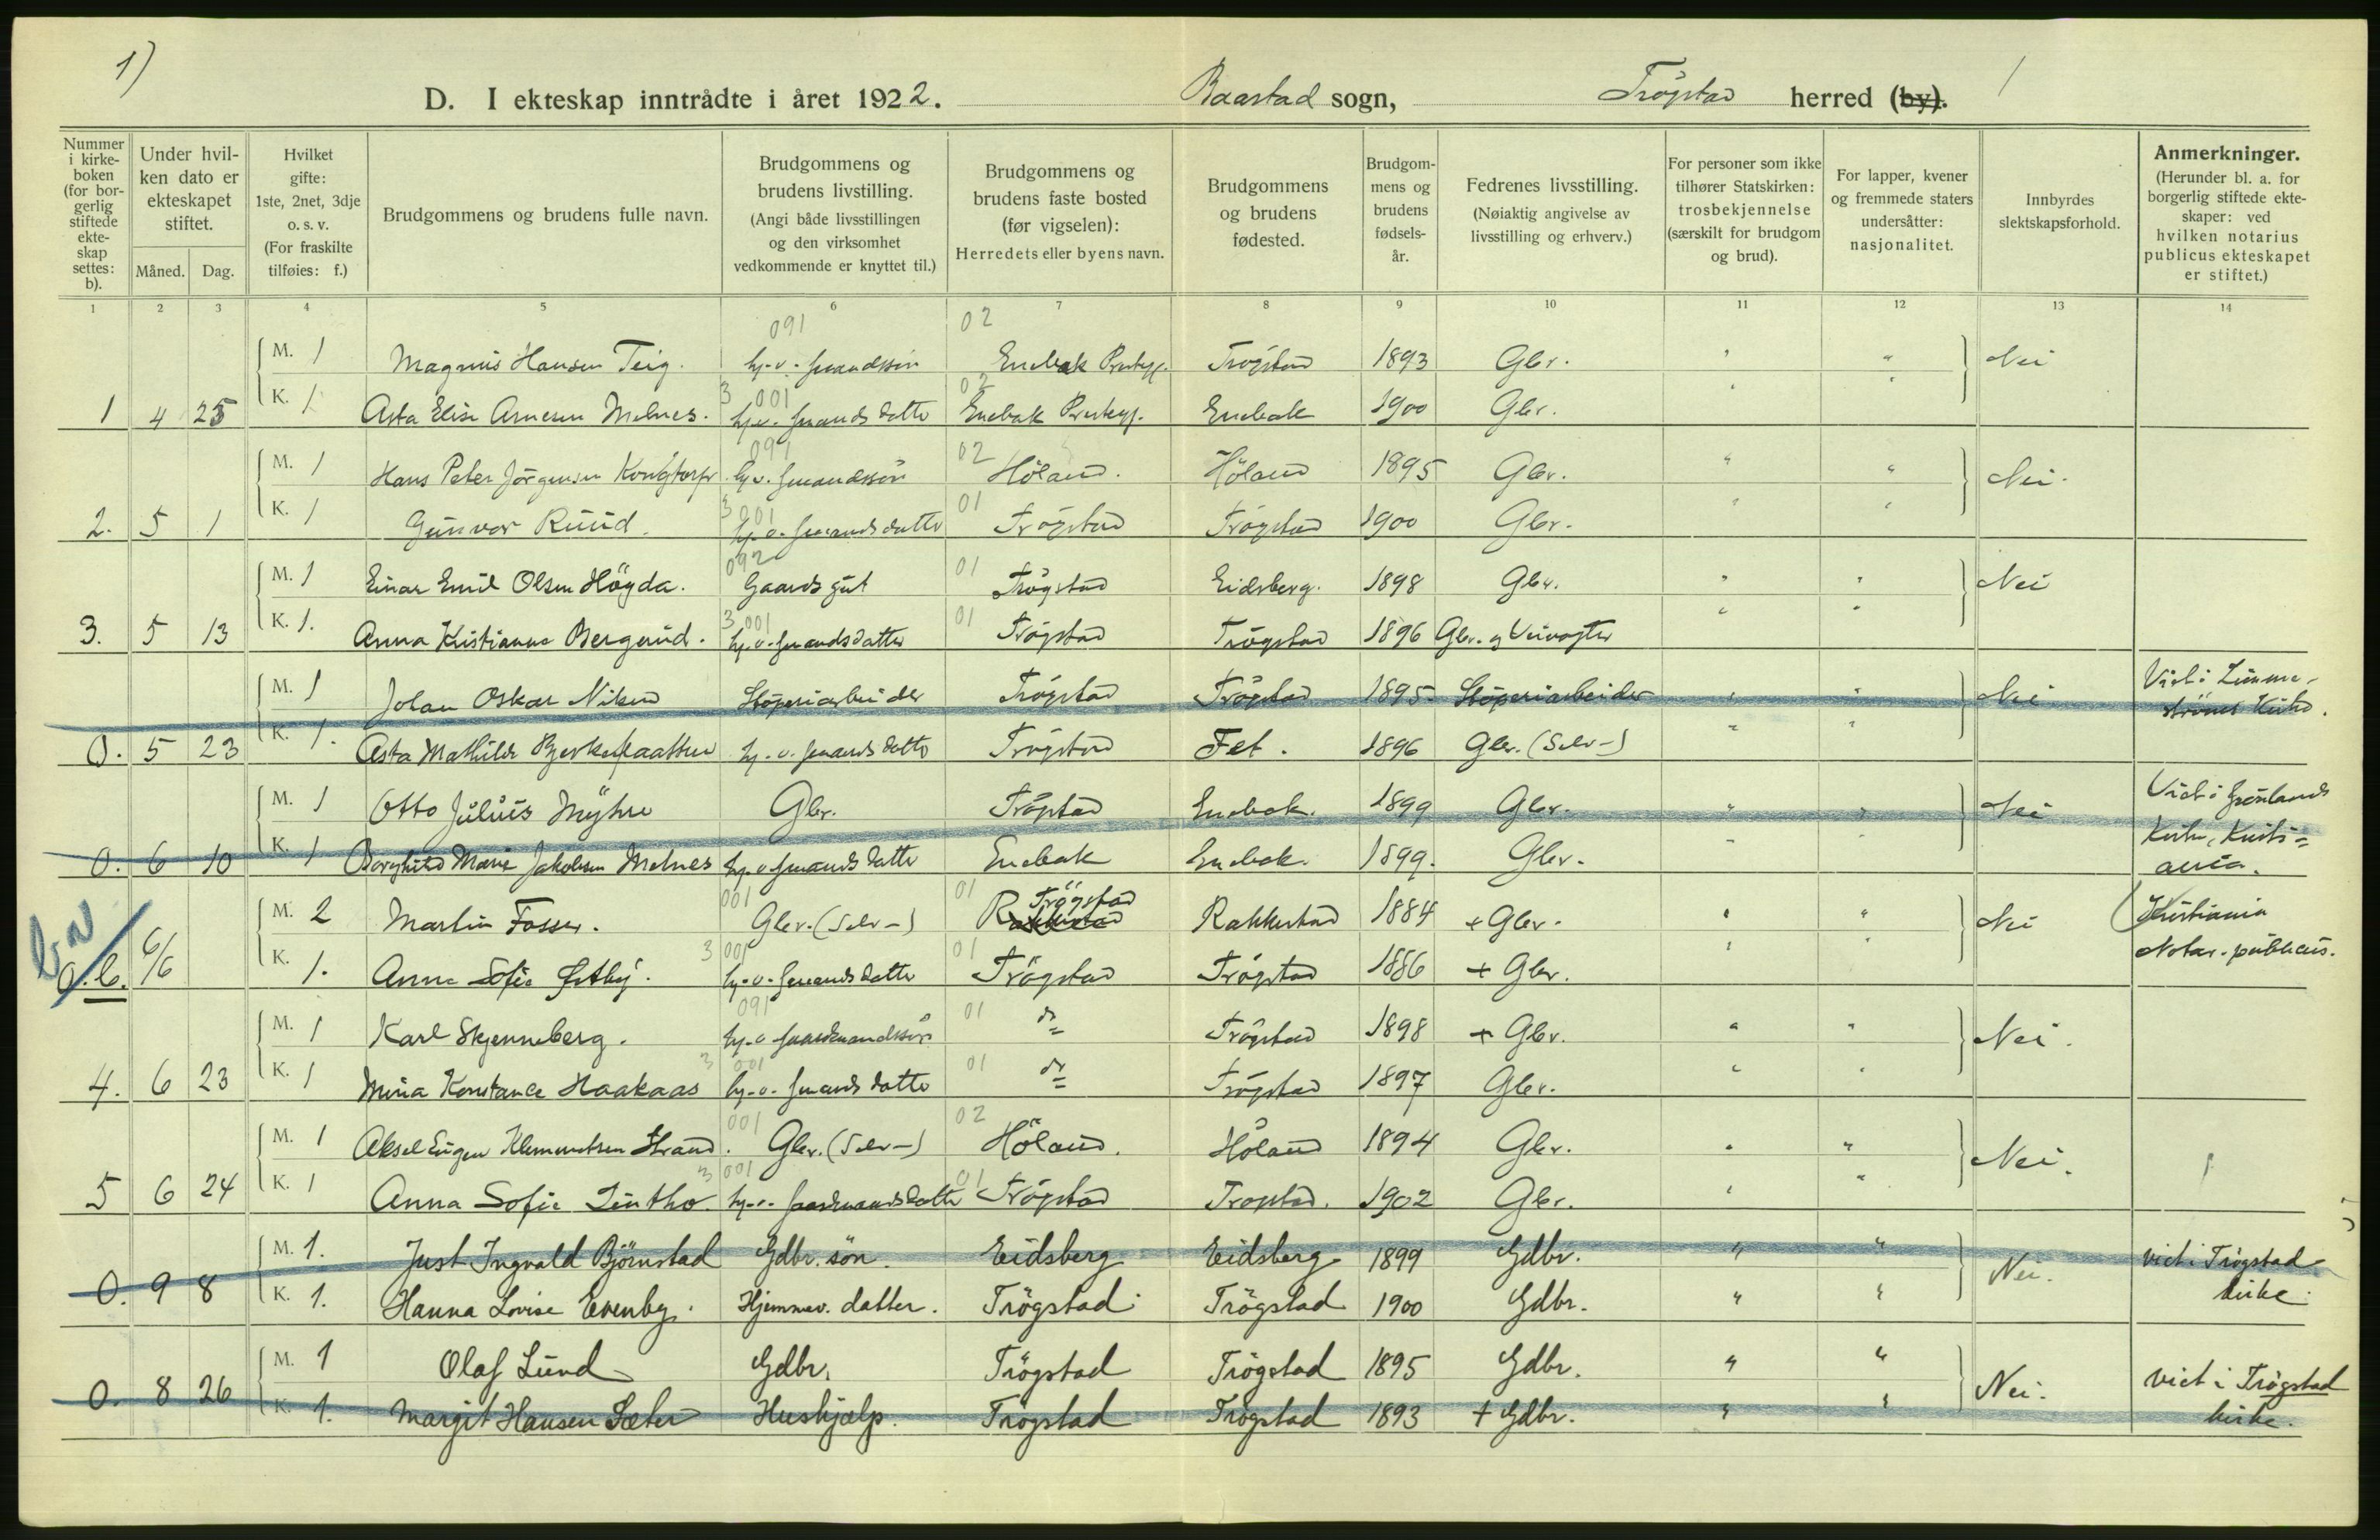 1)
D. I ekteskap inntrådte i året 1922. Baastad sogn, Trögstad herred (by). 1
Nummer i kirkeboken (for borgerlig stiftede ekteskap settes: b).
Under hvilken dato er ekteskapet stiftet. Måned. Dag.
Hvilket gifte: 1ste, 2net, 3dje o. s. v. (For fraskilte tilføies: f.)
Brudgommens og brudens fulle navn.
Brudgommens og brudens livstilling. (Angi både livsstillingen og den virksomhet vedkommende er knyttet til.)
Brudgommens og brudens faste bosted (før vigselen): Herredets eller byens navn.
Brudgommens og brudens fødested.
Brudgommens og brudens fødselsår.
Fedrenes livsstilling. (Nøiaktig angivelse av livsstilling og erhverv.)
For personer som ikke tilhører Statskirken: trosbekjennelse (særskilt for brudgom og brud).
For lapper, kvener og fremmede staters undersåtter: nasjonalitet.
Innbyrdes slektskapsforhold.
Anmerkninger. (Herunder bl. a. for borgerlig stiftede ekteskaper: ved hvilken notarius publicus ekteskapet er stiftet.)
1 2 3 4 5 6 7 8 9 10 11 12 13 14
091 02
M. 1 Magnus Hansen Teig. hj.v. gmandssön Enebak Prestegj. Trögstad 1893 Gbr. " " Nei
3 001 02
1 4 25 K. 1 Asta Elise Arnesen Melnes. hj.v. gmands datter Enebak Prestegj. Enebak 1900 Gbr. " "
091 02
M. 1 Hans Peter Jörgensen Kongtorp hj.v. gmandssön Höland. Höland 1895 Gbr. " " Nei.
3 001 01
2. 5 1 K. 1 Gunvor Ruud. hj.v. gmands datter Trögstad Trögstad 1900 Gbr. " "
092 01
M. 1 Einar Emil Olsen Högda. Gaardsgut Trögstad Eidsberg. 1898 Gbr. " " Nei
3 001 01
3. 5 13 K. 1. Anna Kristianne Bergerud. hj.v. gmandsdatter Trögstad Trögstad 1896 Gbr. og Veivogter " "
M. 1 Johan Oskar Niksen Stöperiarbeider Trögstad Trögstad 1895 Stöperiarbeider " " Nei Viet i
0. 5 23 K. 1. Asta Mathilde hj.v. gmands datter Trögstad Fet. 1896 Gbr. (Selv-) " "
M. 1 Otto Julius Myhre Gbr. Trögstad Enebak. 1899 Gbr. " " Nei Viet i Grönlands
0. 6 10 K. 1 Borghild Marie Jakobsen Melnes hj.v. gmands datter Enebak Enebak. 1899. Gbr. " Kirke, Kristiania.
001 01 Trögstad
M. 2 Martin Fosser. Gbr. (Selv-) Rakkestad Rakkestad 1884 + Gbr. " " Nei Kristiania
3 001 01
0. b. 6/6 K. 1. Anna Sofie Østby. hj.v. gmands datter Trögstad Trögstad 1886 + Gbr. " " Notar. publicus.
091 01
M. 1 Karl Skjenneberg. hj.v. gaardmandssön do Trögstad 1898 + Gbr. " " Nei.
3 001 01
4. 6 23 K. 1 Mina Konstance Haakaas hj.v. gmands datter do Trögstad 1897 Gbr. " "
001 02
M. 1 Aksel Eugen Klemmetsen Strand. Gbr. (Selv-) Höland. Höland 1894 Gbr. " " Nei.
3 001 01
5 6 24 K. 1 Anna Sofie Lintho hj.v. gaardmandsdatter Trögstad Trögstad. 1902 Gbr. " "
M. 1. Just Ingvald Björnstad Gdbr. sön. Eidsberg Eidsberg 1899 Gdbr. " " Nei. viet i Trögstad
0. 9 8 K. 1. Hanna Lovise Evenby. Hjemmev. datter. Trögstad Trögstad 1900 Gdbr. " " kirke.
M. 1 Olaf Lund Gdbr. Trögstad Trögstad 1895 Gdbr. " " Nei. viet i Trögstad
0. 8 26 K. 1. Margit Hansen Sæter Hushjælp. Trögstad Trögstad 1893 + Gdbr. " " kirke.